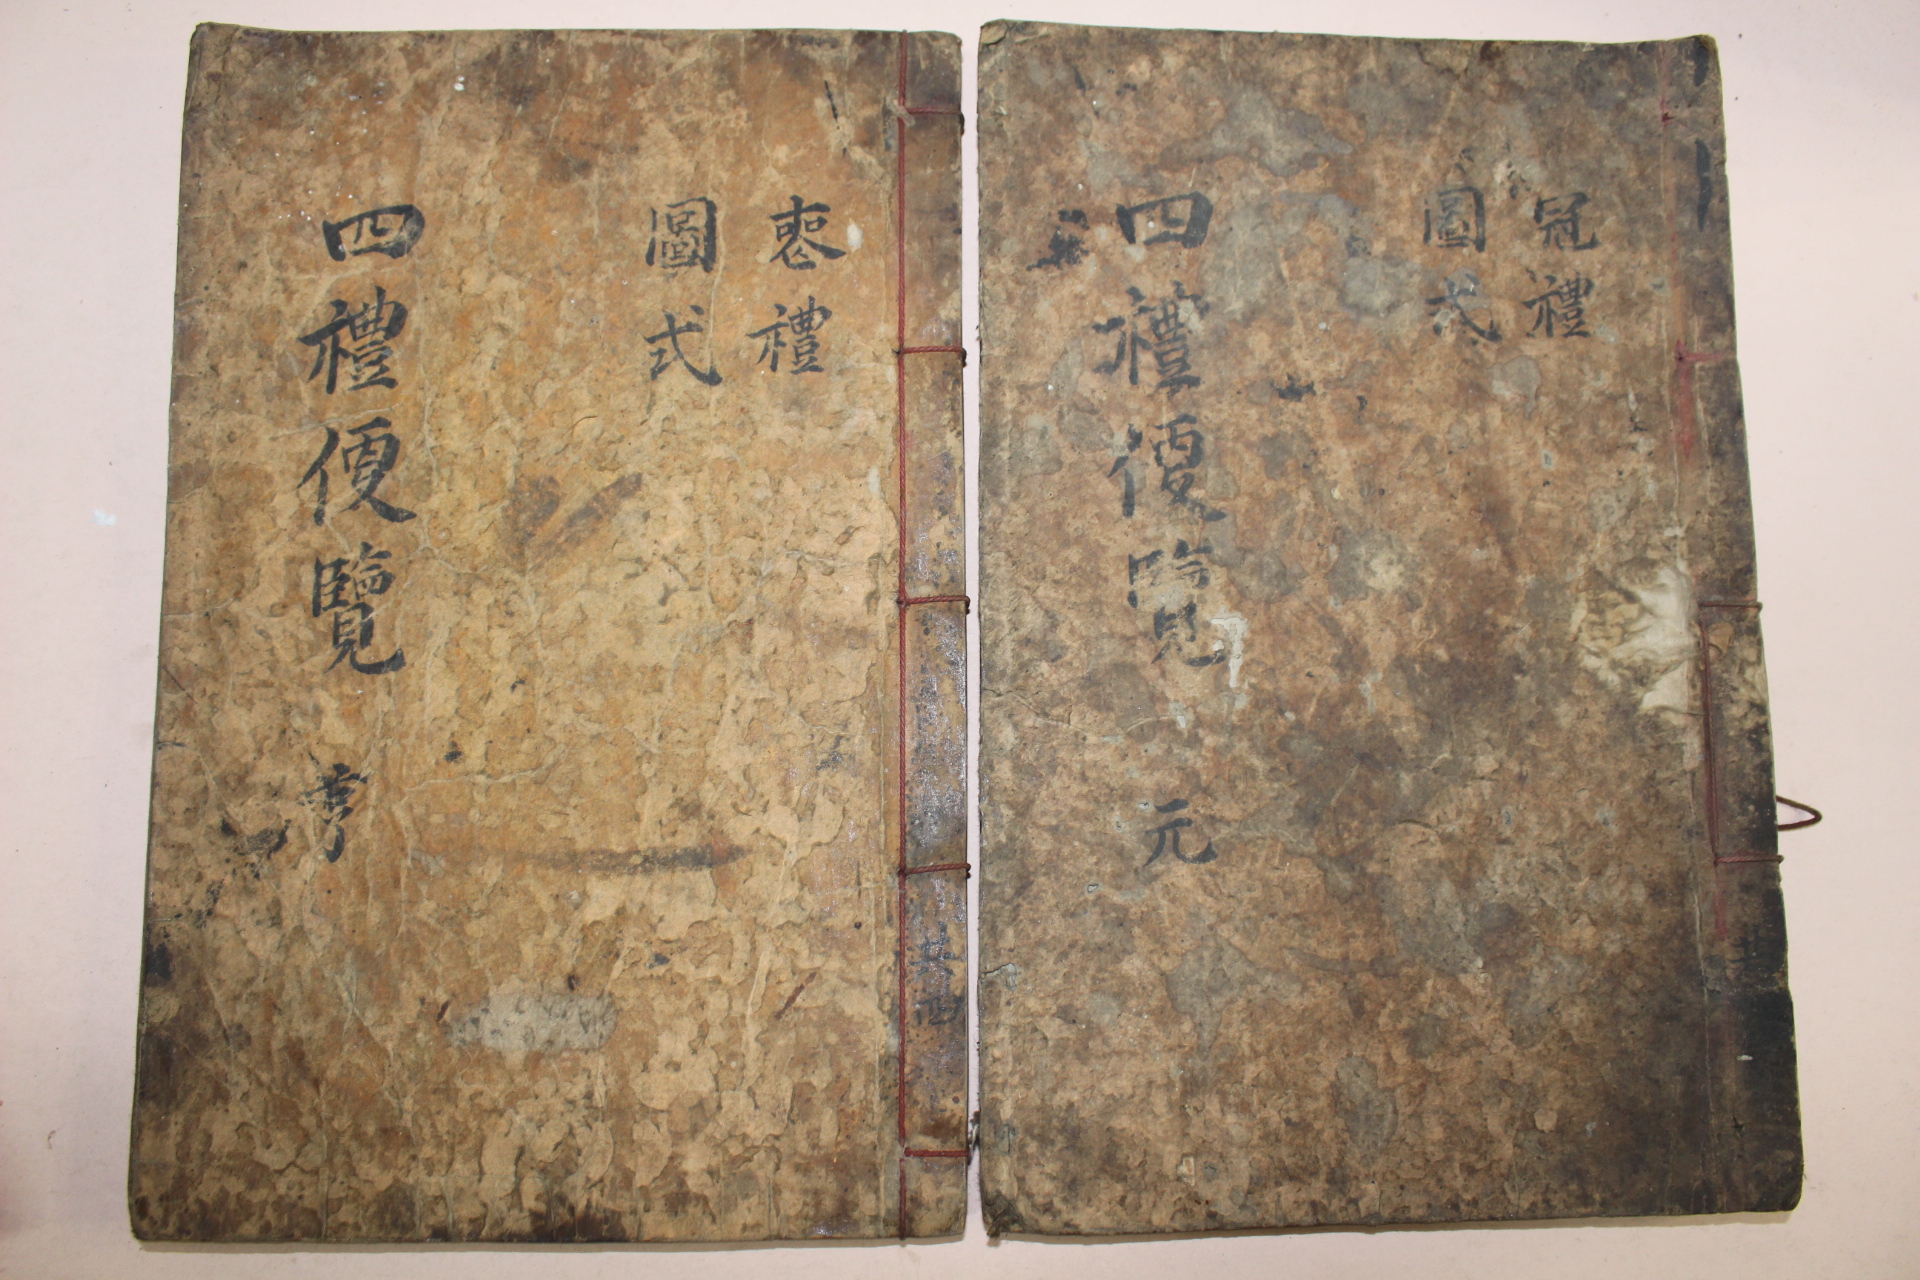 冠禮
圖式
四禮便覽 元
喪禮
圖式
四禮便覽 亨
共四